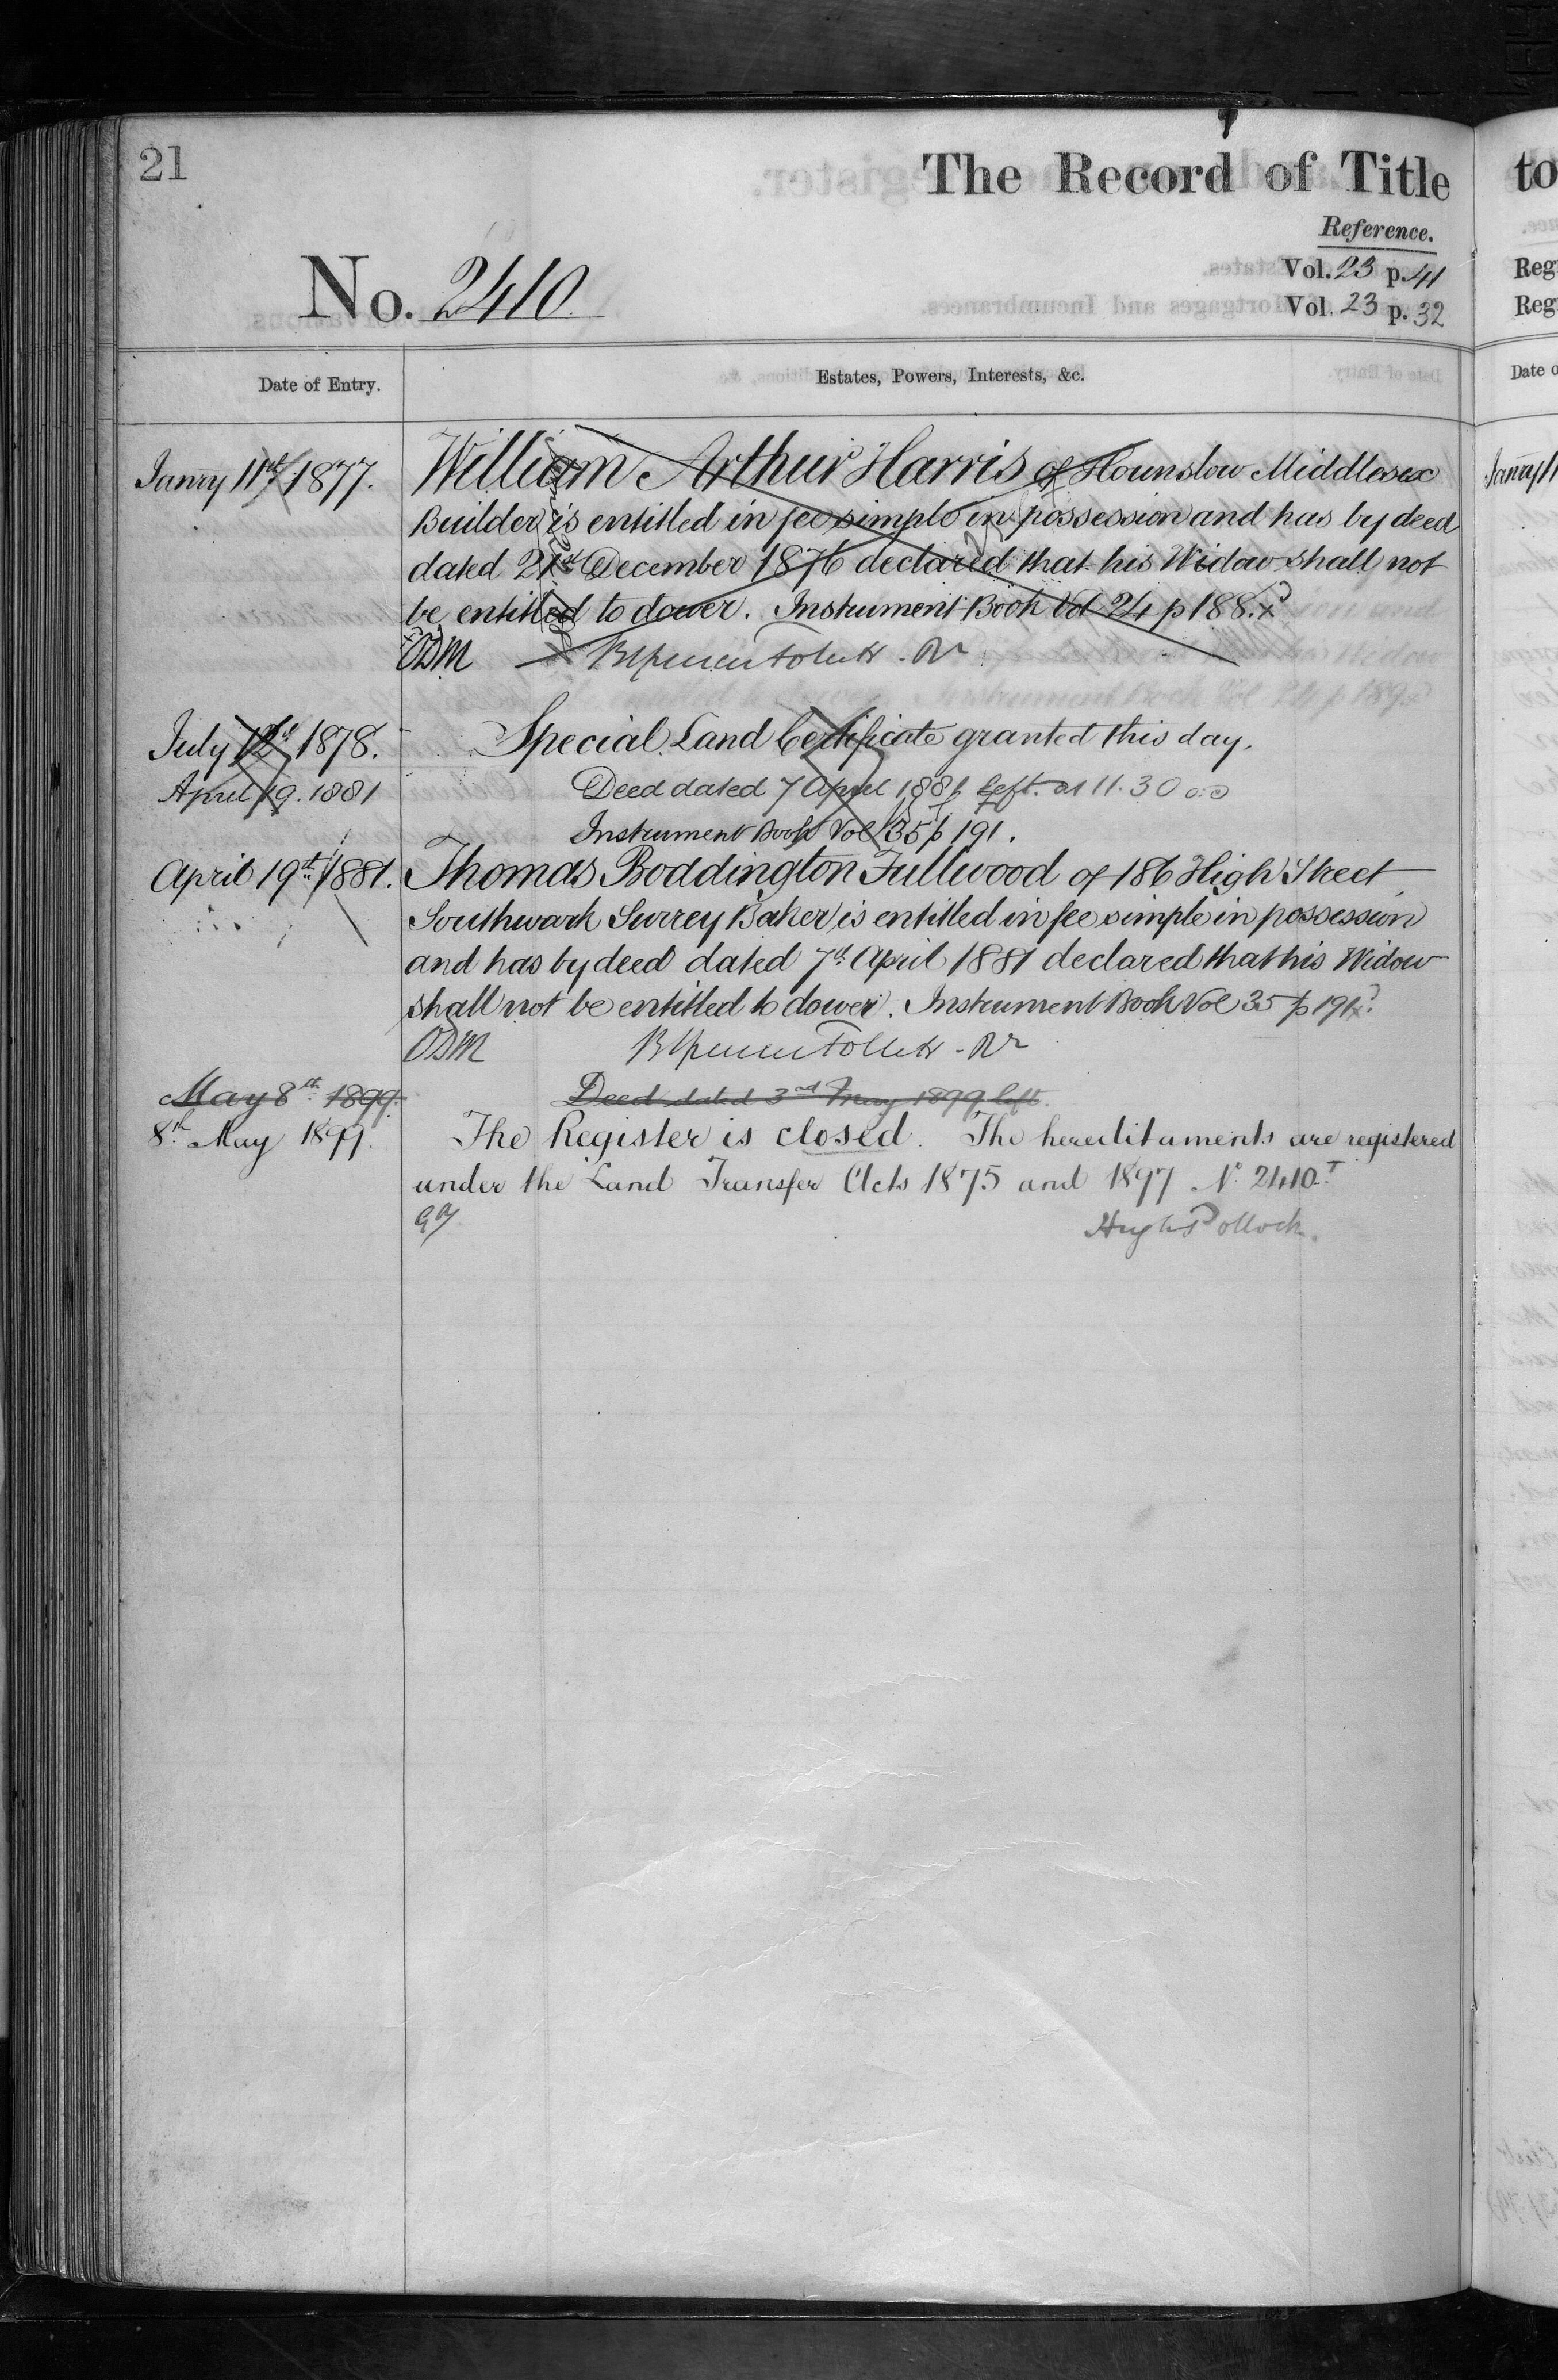 21
The Record of Title
to
Reference.
No. 2410.
Vol. 23 p. 41
Reg
Vol. 23 p. 32
Reg
Date of Entry.
Estates, Powers, Interests, &c.
Date o
Janry 11th 1877.
William Arthur Harris of Hounslow Middlesex
Builder is entitled in fee simple in possession and has by deed
dated 21st December 1876 declared that his Widow shall not
be entitled to dower. Instrument Book Vol 24 p 188.
ODM
July 12th 1878.
Special Land Certificate granted this day.
April 19. 1881
Deed dated 7 April 1881 left at 11.30
Instrument Book Vol 35 p 191.
April 19th 1881.
Thomas Boddington Fullwood of 186 High Street
Southwark Surrey Baker is entitled in fee simple in possession
and has by deed dated 7th April 1881 declared that his Widow
shall not be entitled to dower. Instrument Book Vol 35 p 191
ODM
May 8th 1899.
Deed dated 3rd May 1899 left.
8th May 1899.
The Register is closed. The hereditaments are registered
under the Land Transfer Acts 1875 and 1897 No. 2410 T
Hugh Pollock.